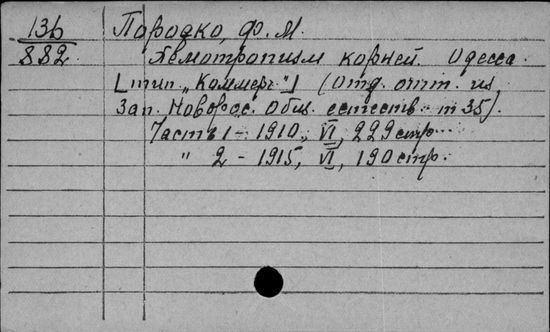 136 Породко, Ф. М.
882 Хемотропизм корней. Одесса.
[тип. „Коммерч."] (Отд. отт. из
Зап. Новоросс. Общ. естеств. т 35).
Часть 1 - 1910, VI, 229 стр.
" 2 - 1915, VI, 190 стр.